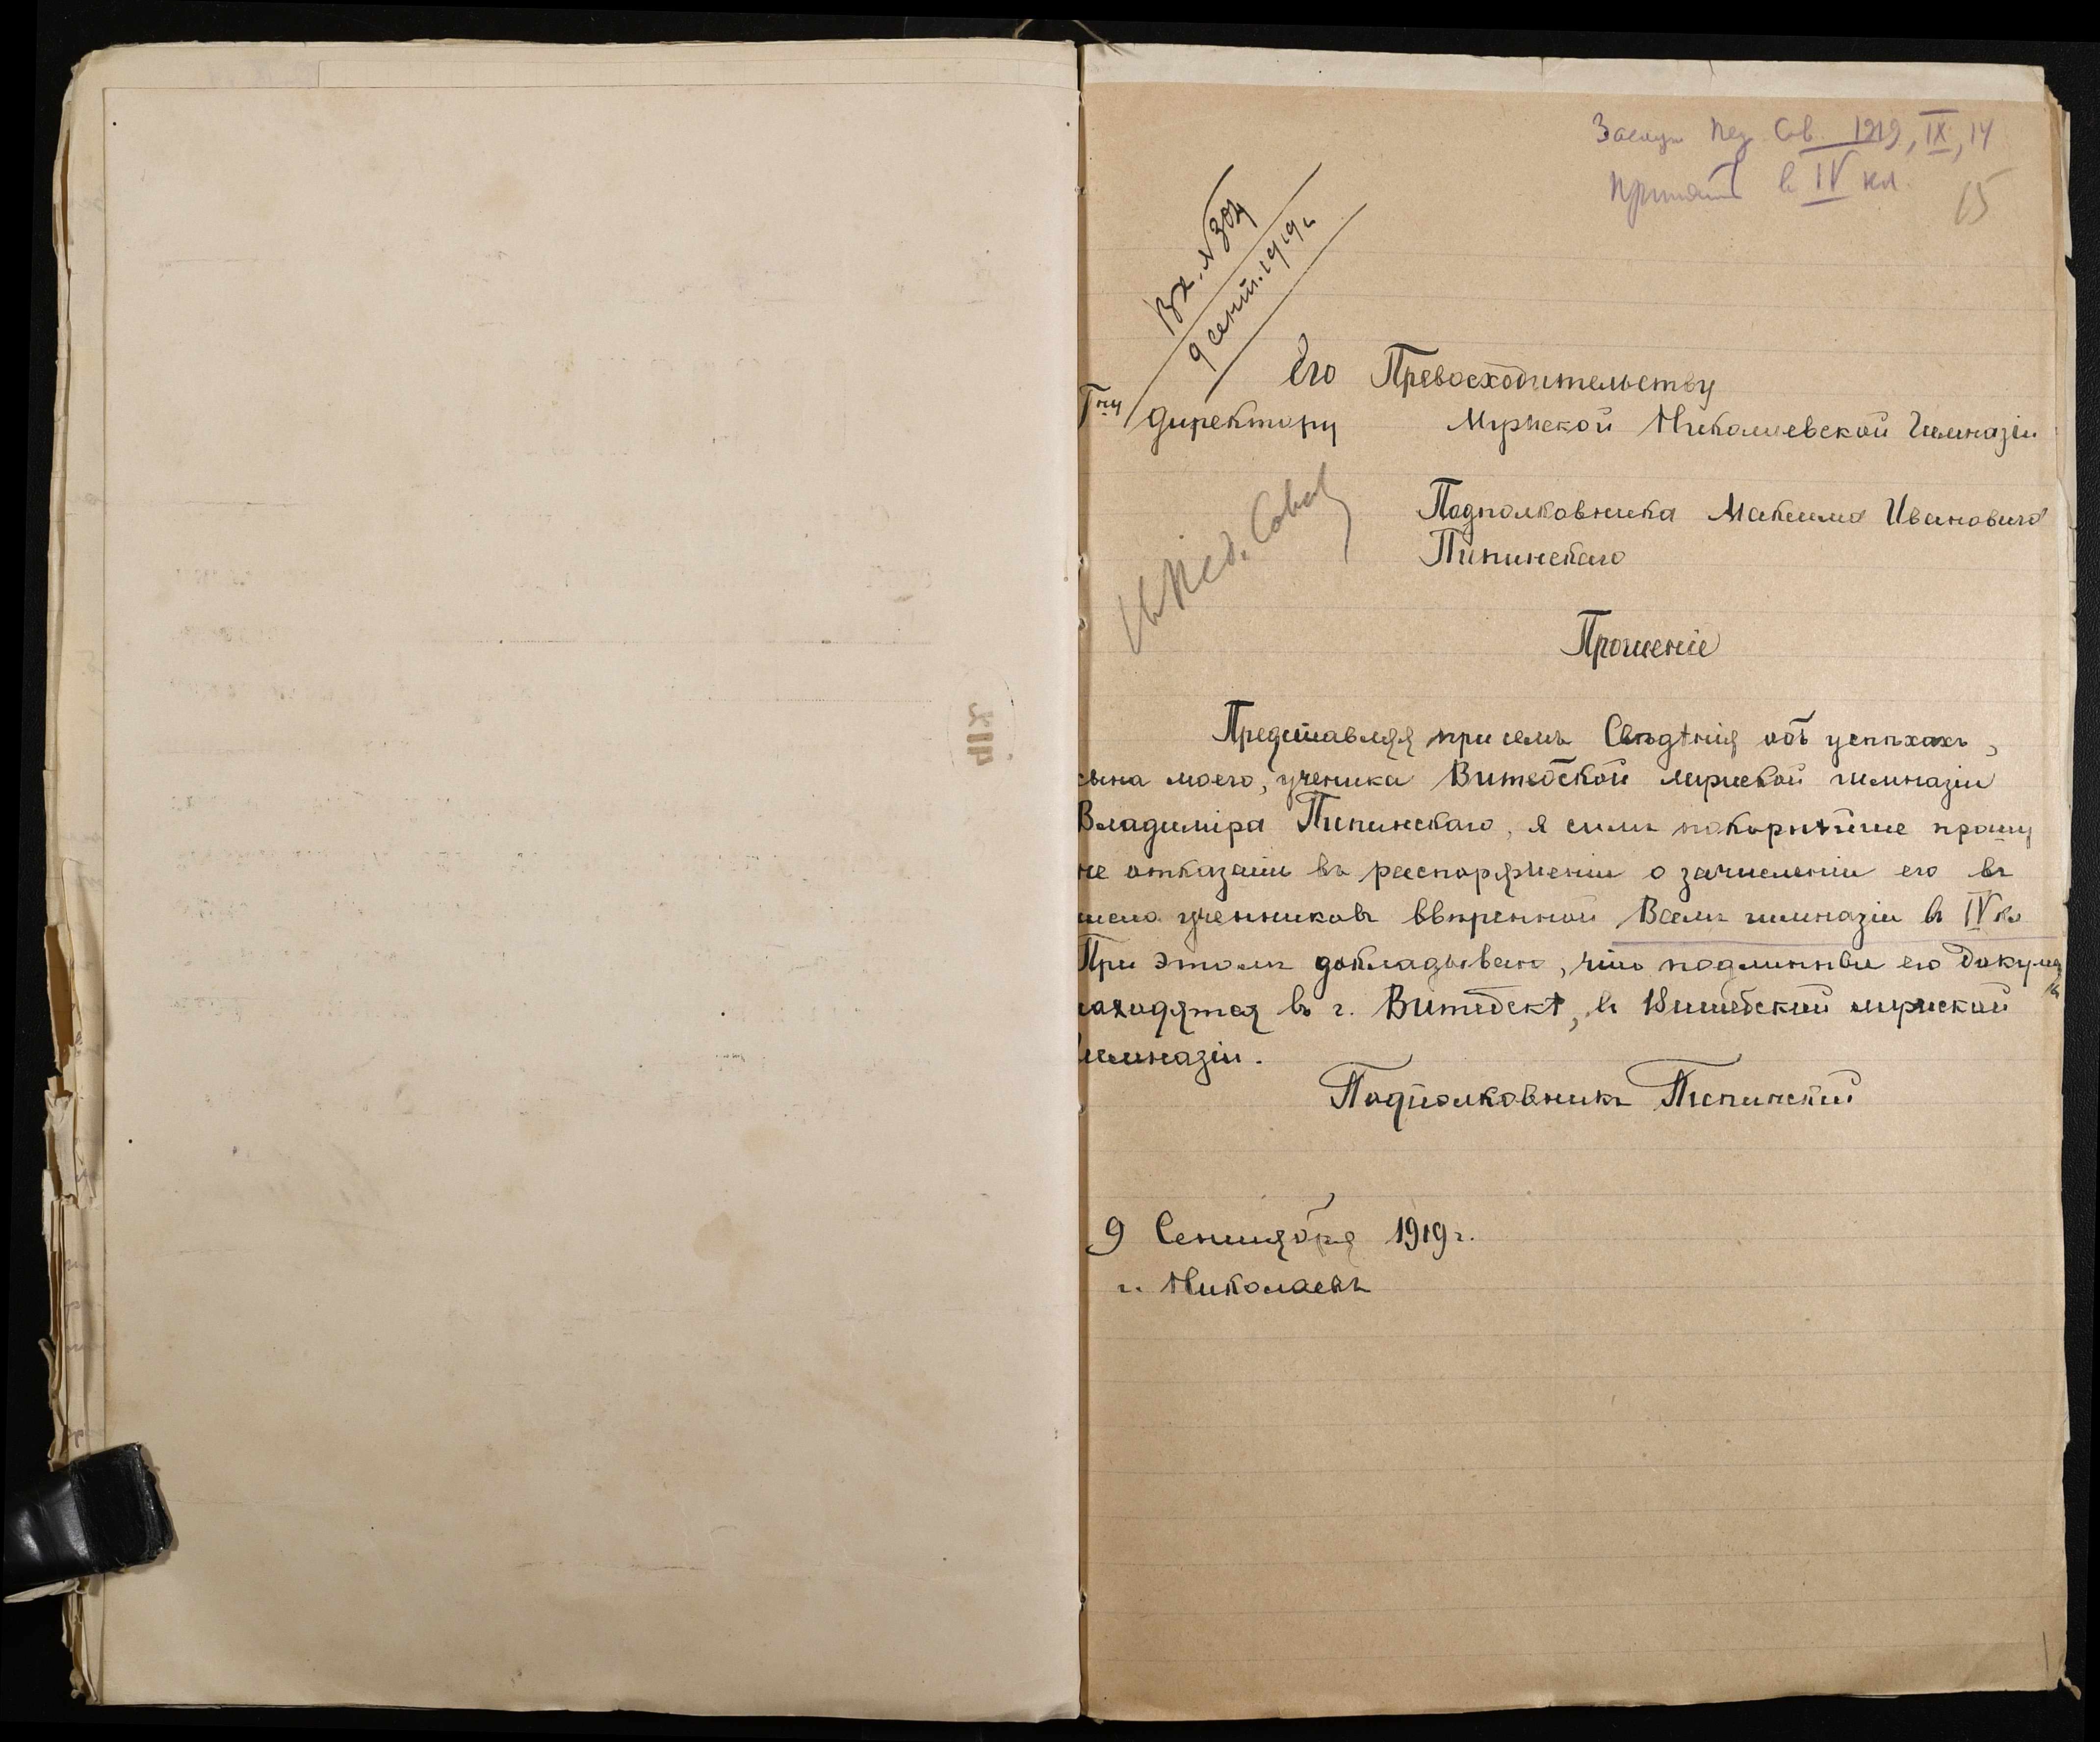 Заслуш Пед. Сов. 1919, IX, 14
принять в IV кл.
15
Вх. №304
9 сент. 1919 г.
Его Превосходительству
Гну Директору Мужской Николаевской Гимназіи
Въ Пед. Совѣт
Подполковника Максима Ивановича
Пипинскаго
Прошеніе
Представляя при семъ Свѣдѣнія объ успѣхахъ,
сына моего, ученика Витебской мужской гимназіи
Владиміра Пипинскаго, я симъ покорнѣйше прошу
не отказать въ распоряженіи о зачисленіи его въ
число учениковъ ввѣренной Вамъ гимназіи въ IV кл
При этомъ докладываю, что подлинные его докумен
находятся въ г. Витебскѣ, въ Витебской мужской
гимназіи.
Подполковникъ Пипинскій
9 Сентября 1919 г.
г. Николаевъ